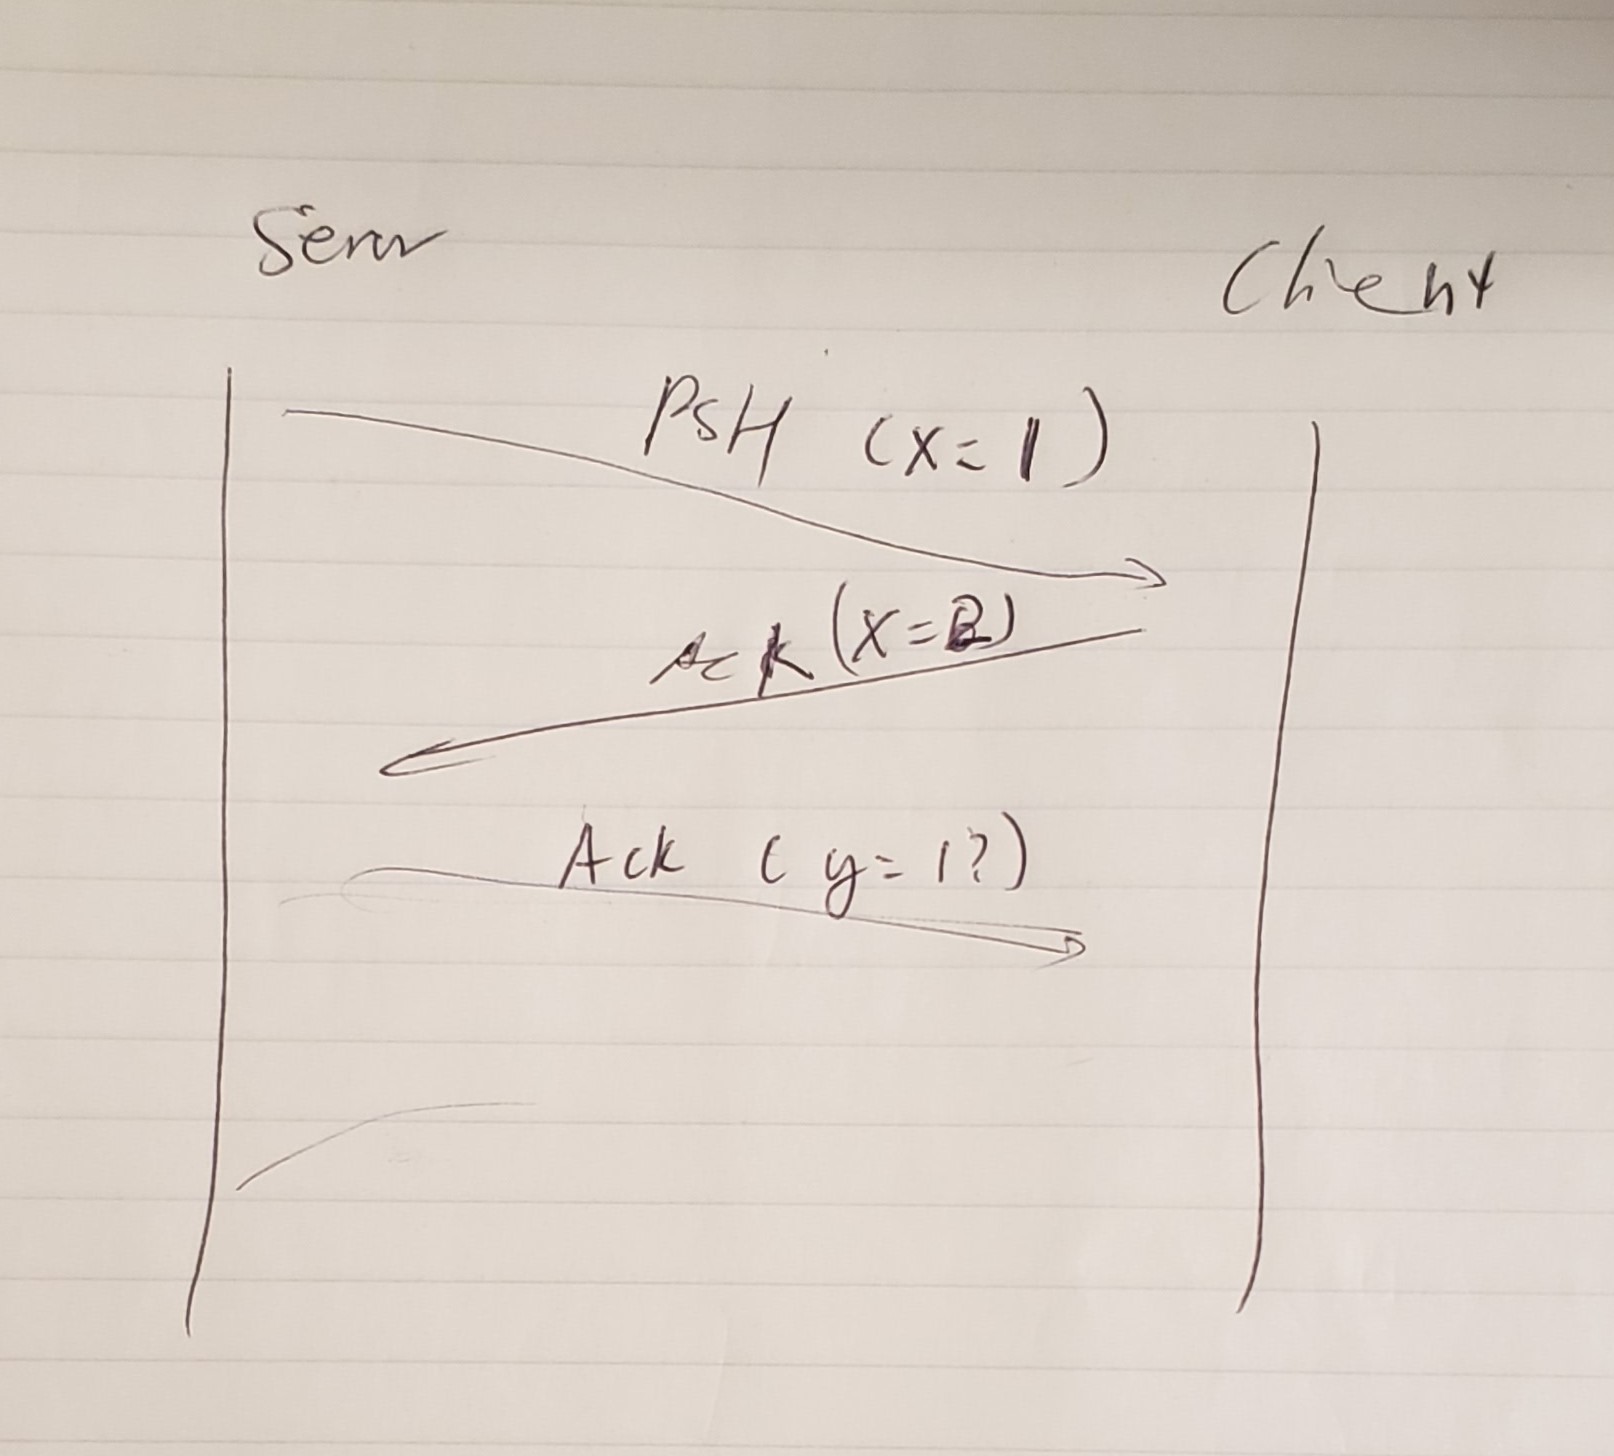 Server
Client
PSH (x=1)
Ack (x=2)
Ack (y=1?)